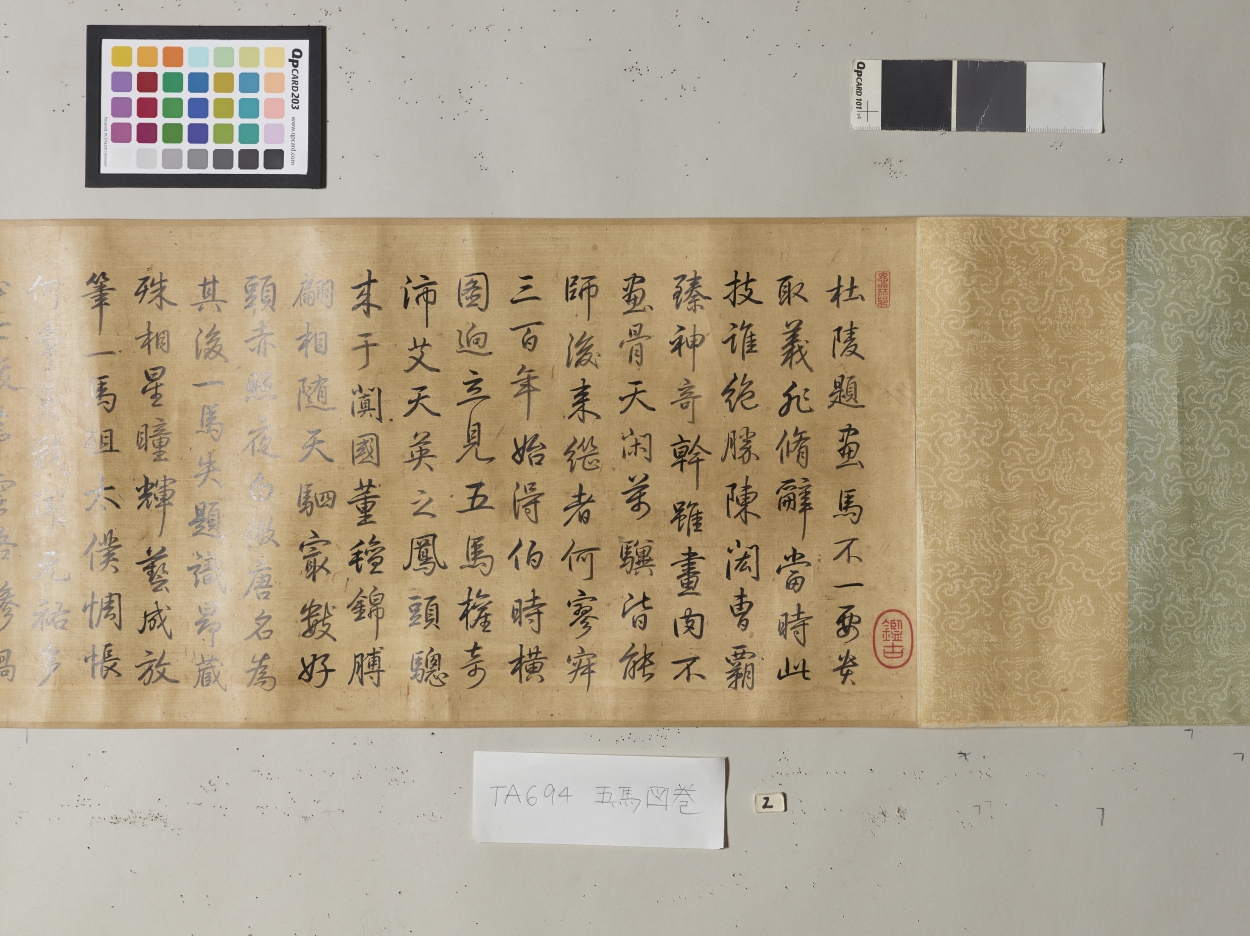 杜陵題画馬不一要貴
取義非脩辭當時此
技誰絶勝陳閎曹霸
臻神奇幹雖畫肉不
畫骨天閑萬驥皆能
師後来繼者何寥寂
三百年始得伯時橫
圖迥立見五馬權奇
沛艾天英之鳳頭驄
来于闐國董氊錦膊
翩相随天駟最好
頭赤照夜白倣唐名為
其後一馬失題識帝藏
殊相星瞳輝藝成放
筆一馬殂太僕惆悵
元祐多
QPCARD 203
www.qpcard.com
QPCARD 101 v4
鑑古
TA694 五馬図巻
2